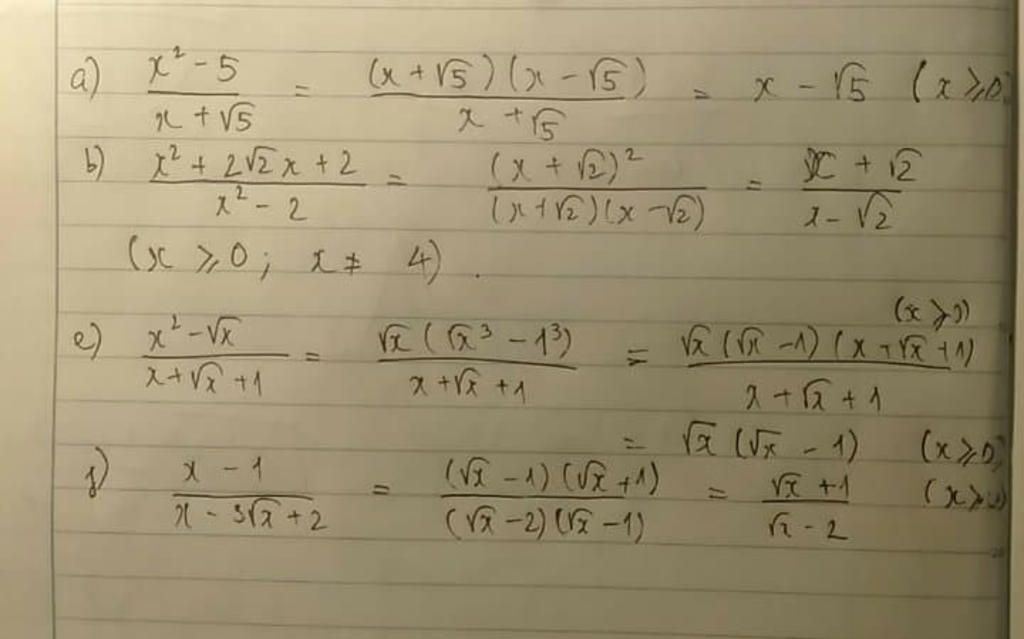 a) \frac{x^2 - 5}{x + \sqrt{5}} = \frac{(x + \sqrt{5})(x - \sqrt{5})}{x + \sqrt{5}} = x - \sqrt{5} (x ⩾ 0)
b) \frac{x^2 + 2\sqrt{2}x + 2}{x^2 - 2} = \frac{(x + \sqrt{2})^2}{(x + \sqrt{2})(x - \sqrt{2})} = \frac{x + \sqrt{2}}{x - \sqrt{2}}
(x ⩾ 0; x ≠ 4).
e) \frac{x^2 - \sqrt{x}}{x + \sqrt{x} + 1} = \frac{\sqrt{x}(\sqrt{x}^3 - 1^3)}{x + \sqrt{x} + 1} = \frac{\sqrt{x}(\sqrt{x} - 1)(x + \sqrt{x} + 1)}{x + \sqrt{x} + 1} (x ⩾ 0)
= \sqrt{x}(\sqrt{x} - 1) (x ⩾ 0)
f) \frac{x - 1}{x - 3\sqrt{x} + 2} = \frac{(\sqrt{x} - 1)(\sqrt{x} + 1)}{(\sqrt{x} - 2)(\sqrt{x} - 1)} = \frac{\sqrt{x} + 1}{\sqrt{x} - 2} (x ⩾ 0)